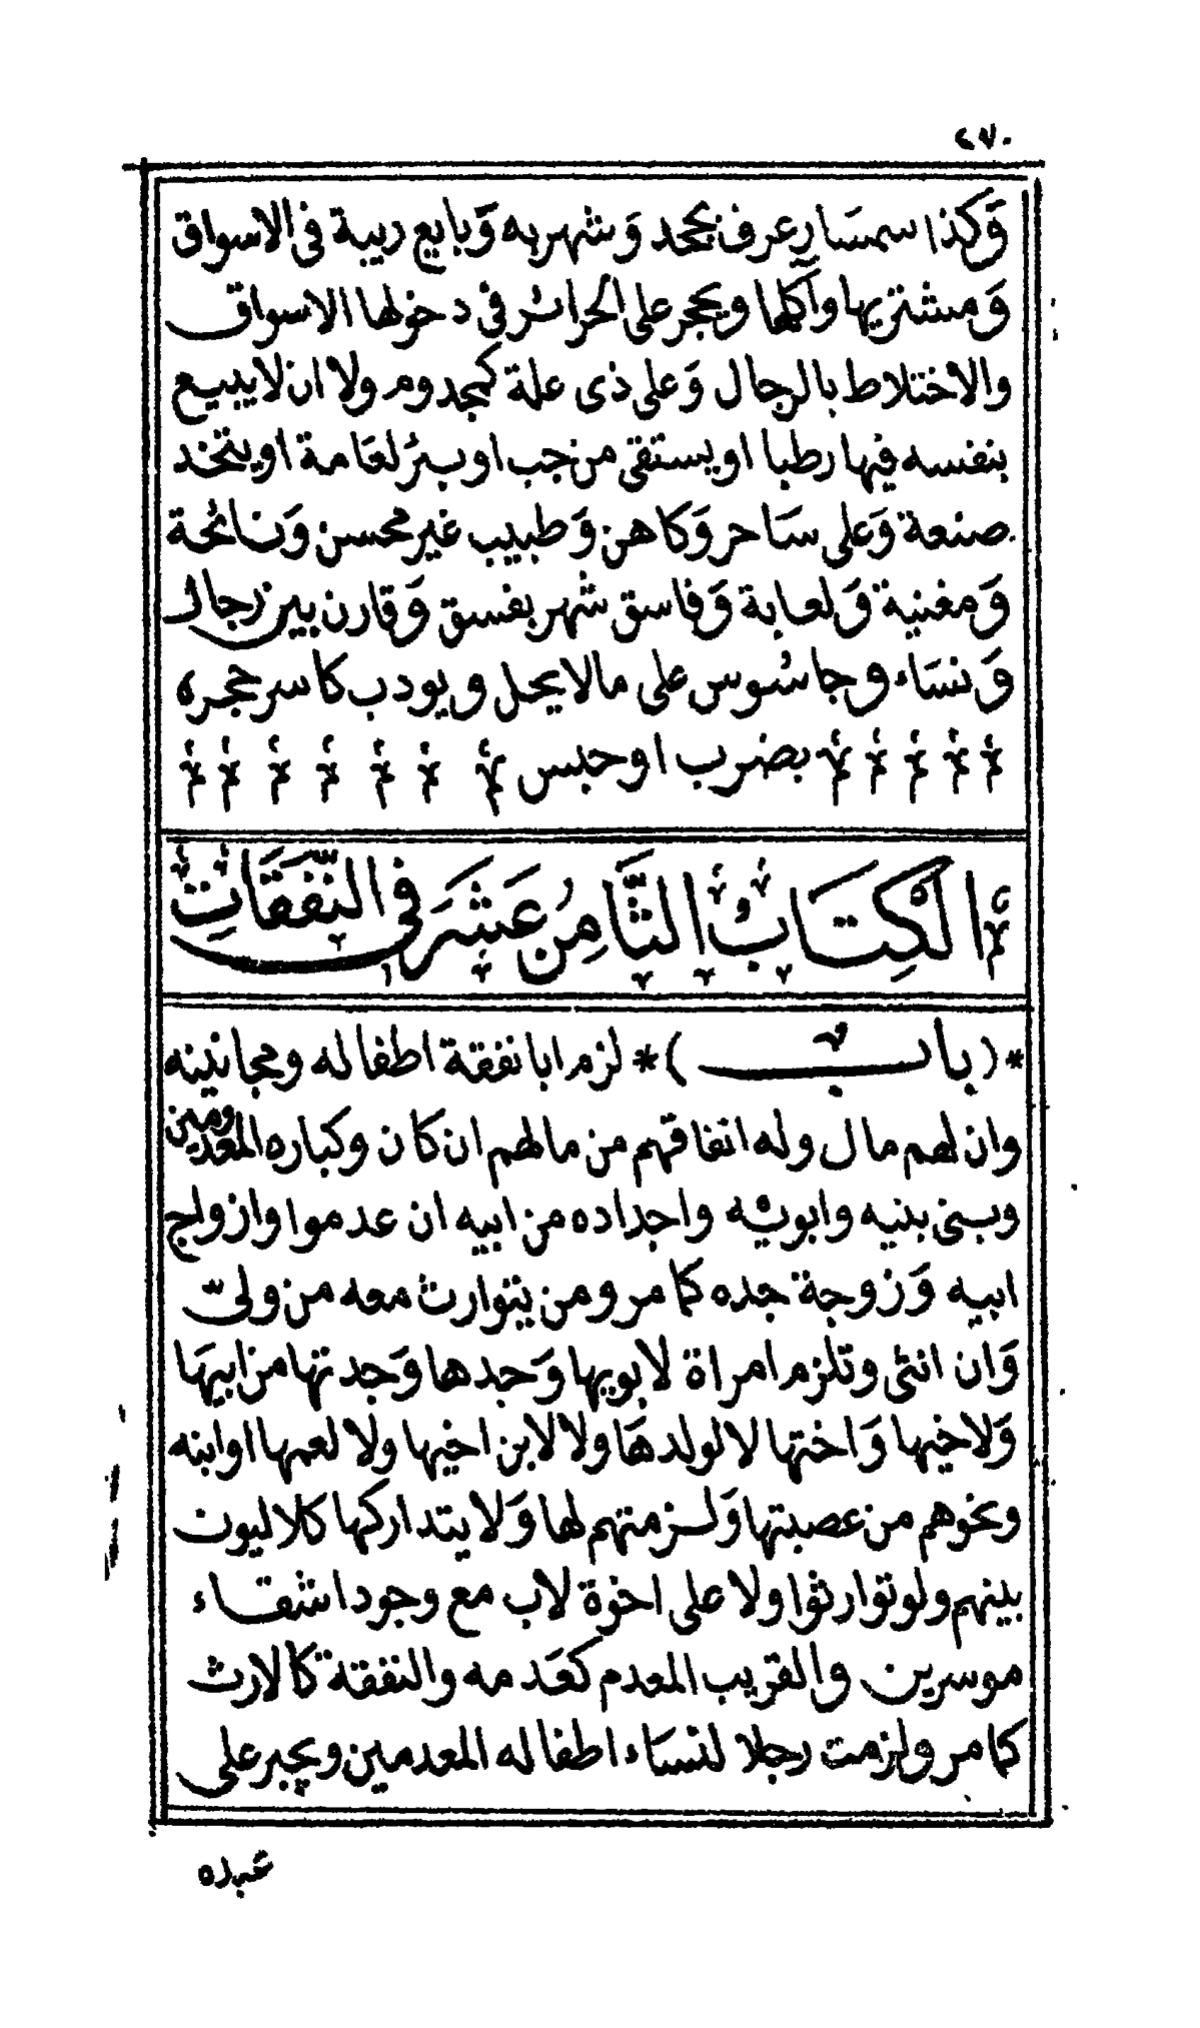 ٢٧٠
وَكذا سمسَار عرف بجحد وَشهر به وَبايع ريبة فى الاسواق
وَمشتريها وآكلها ويحجر على الحرائر فى دخولها الاسواق
والاختلاط بالرجال وَعلى ذى علة كمجدوم ولا ان لا يبيع
بنفسه فيها رطبا او يستقى من جب او بئر لعَامة او يتخد
صنعة وَعلى سَاحر وَكاهن وَطبيب غير محسن وَنائحة
وَمغنية وَلعابة وَفاسق شهر بفسق وَقارن بين رجال
وَنسَاء وجاسُوس على مالا يحل ويودب كاسر حجره
بضرب او حبس
الكِتَابُ الثَّامِن عَشَر فى النَّفَقَاتِ
*(باب)* لزم ابا نفقة اطفاله ومجانينه
وان لهم مال وله انفاقهم من مالهم ان كان وكباره المعدومين
وبنى بنيه وابويْه واجداده من ابيه ان عدموا وازواج
ابيه وَزوجة جده كما مر ومن يتوارث معه من ولىّ
وَان انثى وتلزم امراة لابويها وَجدها وَجدتها من ابيهَا
وَلاخيها وَاختها لا لولدهَا ولا لابن اخيها ولا لعمها او ابنه
ونحوهم من عصبتها وَلزمتهم لها وَلا يتداركها كلاليوت
بينهم ولو توارثوا ولا على اخوة لاب مع وجود اشقاء
موسرين والقريب المعدم كعَدمه والنفقة كالارث
كما مر ولزمت رجلا لنسَاء اطفاله المعدمين ويجبر على
عبده